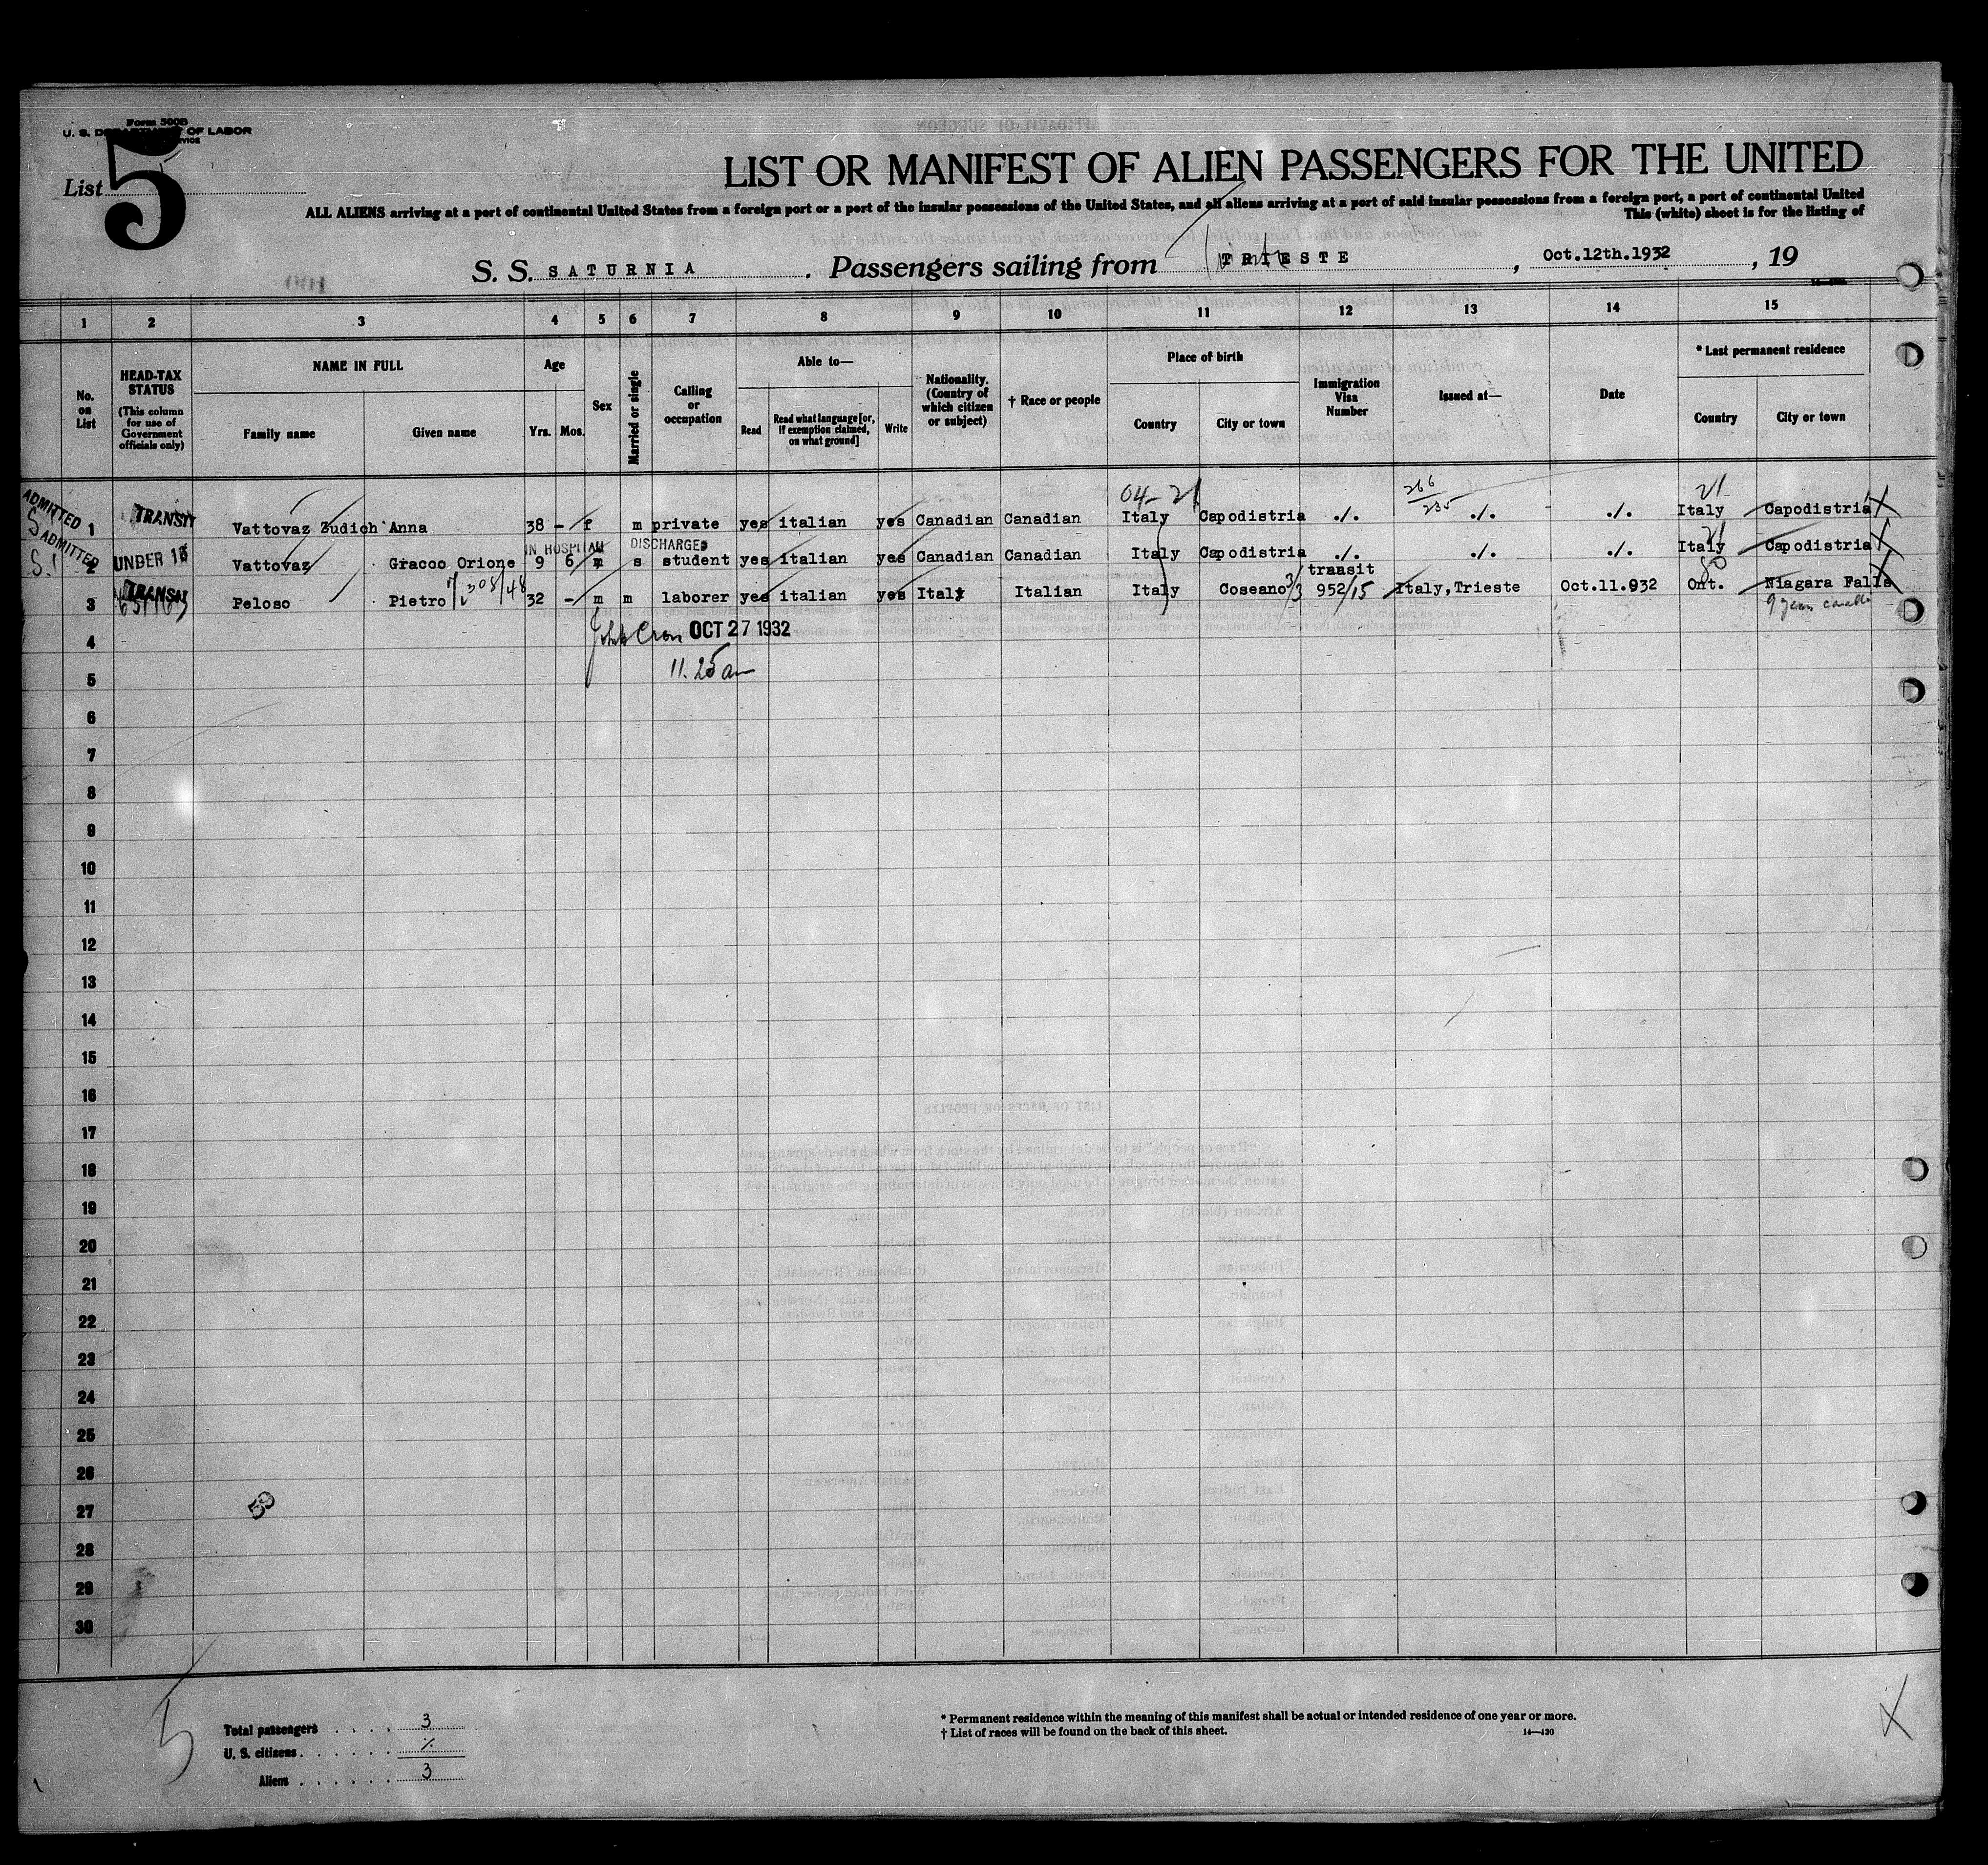 Form 500B
U. S. DEPARTMENT OF LABOR
List 5
LIST OR MANIFEST OF ALIEN PASSENGERS FOR THE UNITED
ALL ALIENS arriving at a port of continental United States from a foreign port or a port of the insular possessions of the United States, and all aliens arriving at a port of said insular possessions from a foreign port, a port of continental United
This (white) sheet is for the listing of
S. S. SATURNIA . Passengers sailing from TRIESTE , Oct.12th.1932 , 19
1 2 3 4 5 6 7 8 9 10 11 12 13 14 15
No. on List
HEAD-TAX STATUS (This column for use of Government officials only)
NAME IN FULL
Family name Given name
Age
Yrs. Mos.
Sex
Married or single
Calling or occupation
Able to—
Read
Read what language [or, if exemption claimed, on what ground]
Write
Nationality. (Country of which citizen or subject)
† Race or people
Place of birth
Country City or town
Immigration Visa Number
Issued at—
Date
* Last permanent residence
Country City or town
04-21 266 235 21
ADMITTED 1 TRANSIT Vattovaz Zudich Anna 38 - f m private yes italian yes Canadian Canadian Italy Capodistria ./. ./. ./. Italy Capodistria
IN HOSPITAL DISCHARGED 21
ADMITTED 2 UNDER 16 Vattovaz Gracco Orione 9 6 m s student yes italian yes Canadian Canadian Italy Capodistria ./. ./. ./. Italy Capodistria
transit
3 TRANSIT Peloso Pietro 32 - m m laborer yes italian yes Italy Italian Italy Coseano 952/15 Italy,Trieste Oct.11.932 Ont. Niagara Falls
9 years
4 John OCT 27 1932
5 11.25 am
6
7
8
9
10
11
12
13
14
15
16
17
18
19
20
21
22
23
24
25
26
27
28
29
30
5
Total passengers . . . . 3
U. S. citizens . . . . . . ./.
Aliens . . . . . . 3
* Permanent residence within the meaning of this manifest shall be actual or intended residence of one year or more.
† List of races will be found on the back of this sheet. 14—430
X